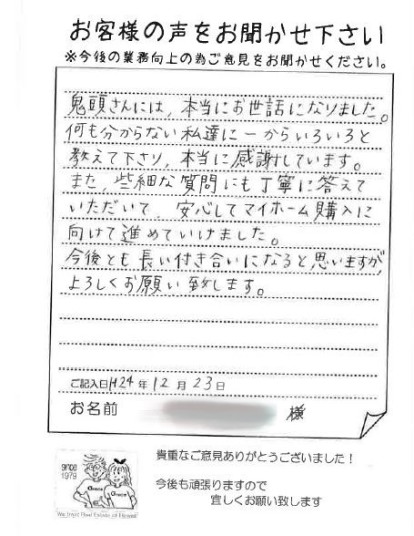 お客様の声をお聞かせ下さい
※今後の業務向上の為ご意見をお聞かせください。
鬼頭さんには、本当にお世話になりました。
何も分からない私達に一からいろいろと
教えて下さり、本当に感謝しています。
また、些細な質問にも丁寧に答えて
いただいて、安心してマイホーム購入に
向けて進めていけました。
今後とも長い付き合いになると思いますが、
よろしくお願い致します。
ご記入日H24年12月23日
お名前 様
貴重なご意見ありがとうございました!
since
1979
今後も頑張りますので
宜しくお願い致します